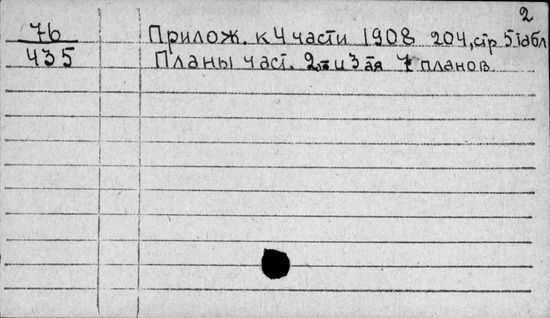 2
76 Прилож. к 4 части 1908 204, стр 5 табл
435 Планы част. 2ая и 3ая 7 планов